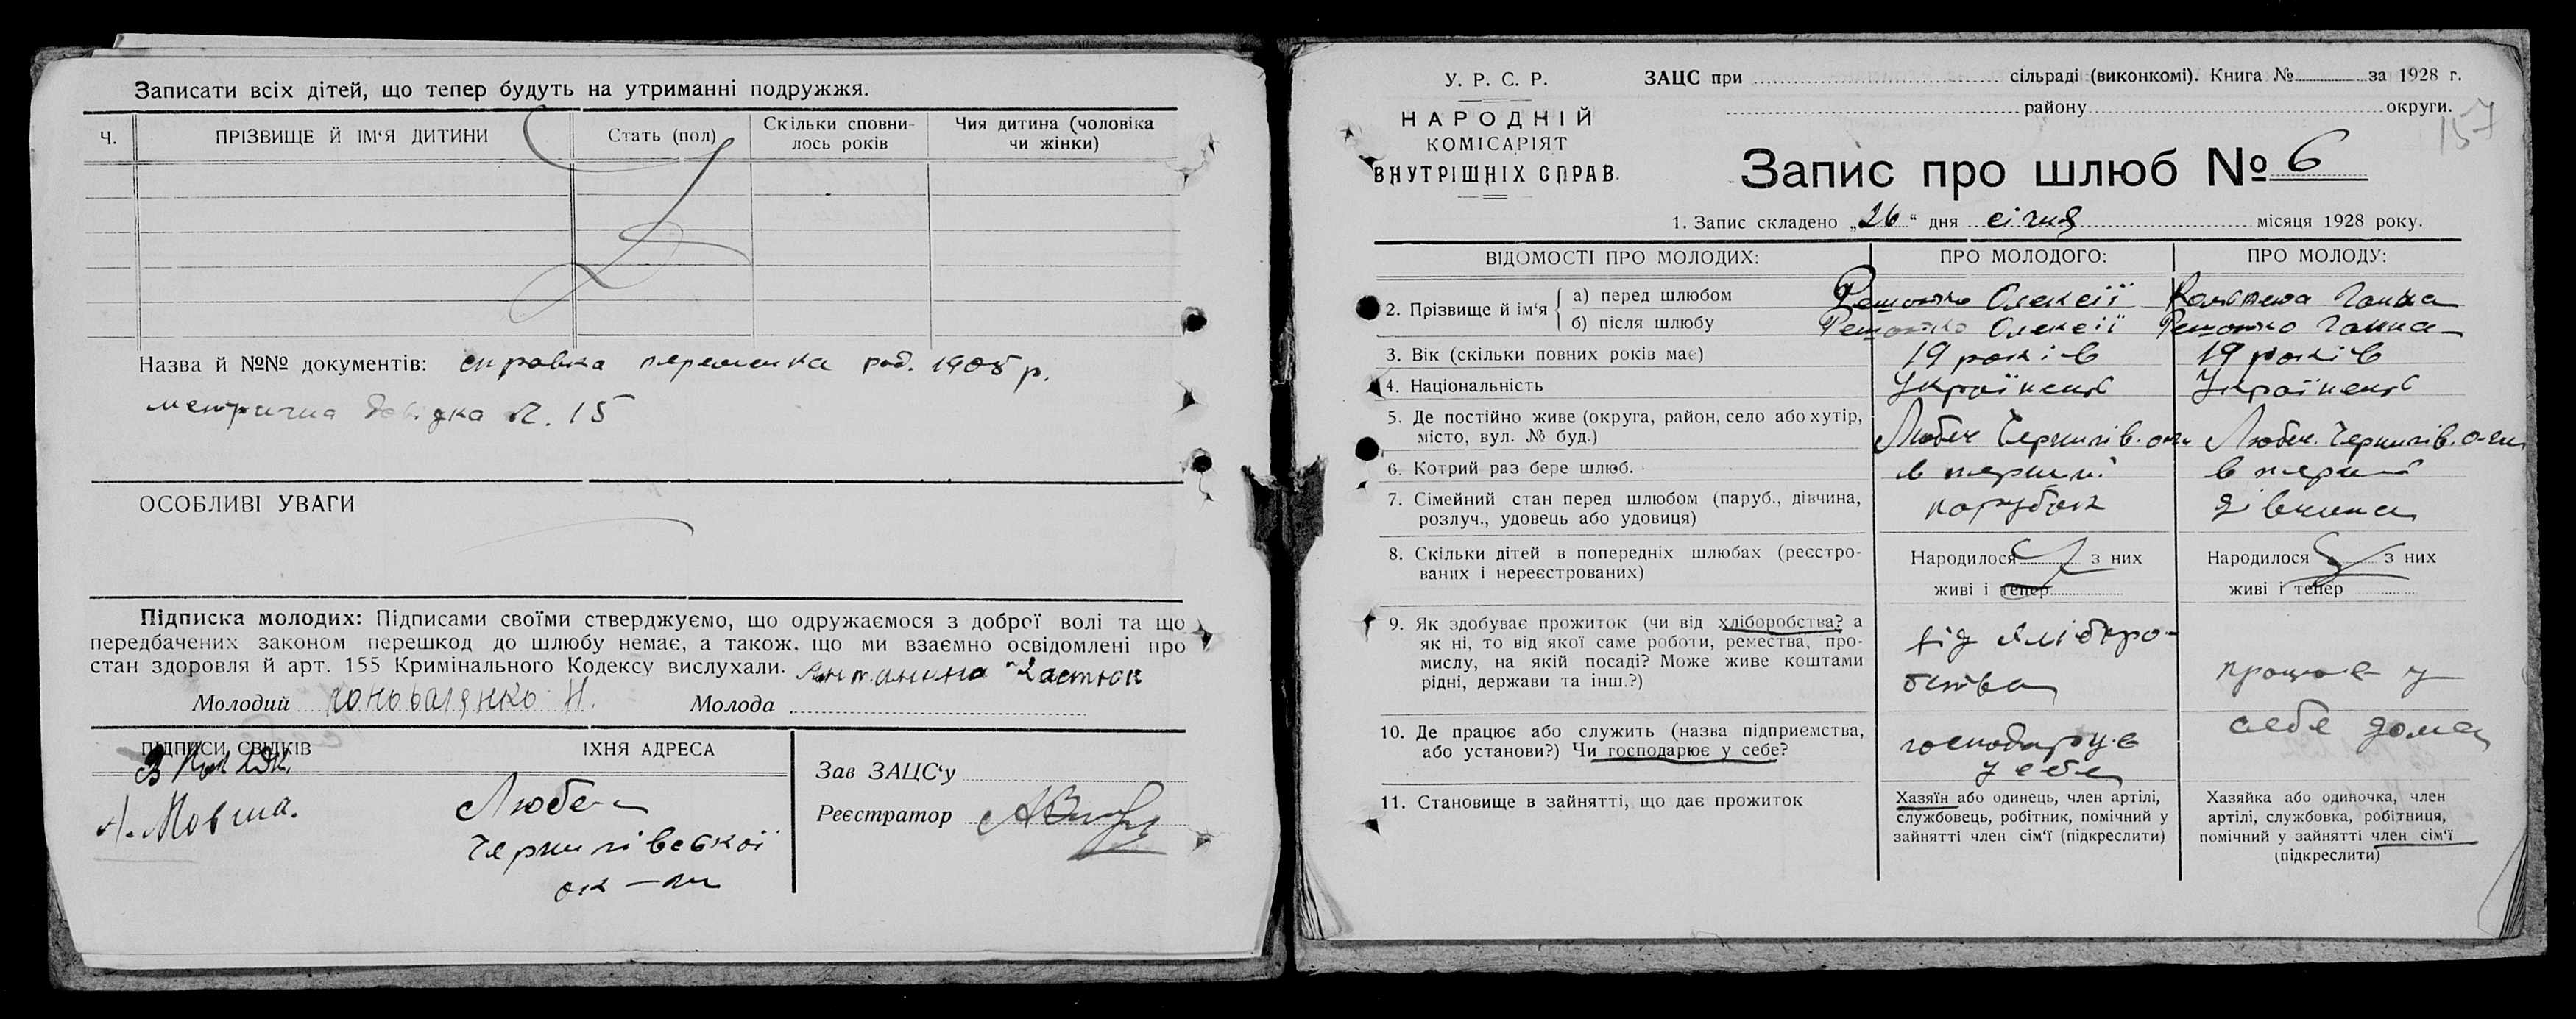 Записати всіх дітей, що тепер будуть на утриманні подружжя.
Ч.
ПРІЗВИЩЕ Й ІМ‘Я ДИТИНИ
Стать (пол)
Скільки сповни-
лось років
Чия дитина (чоловіка
чи жінки)
Назва й №№ документів: справка род. 1908 р.
метрична №. 15
ОСОБЛИВІ УВАГИ
Підписка молодих: Підписами своїми стверджуємо, що одружаємося з доброї волі та що
передбачених законом перешкод до шлюбу немає, а також, що ми взаємно освідомлені про
стан здоровля й арт. 155 Кримінального Кодексу вислухали.
Молодий Коноваленко Н. Молода
ПІДПИСИ СВІДКІВ
ЇХНЯ АДРЕСА
А. Мовша.
Любеч
Чернигівської
ок-ги
Зав ЗАЦС‘у
Реєстратор
У. Р. С. Р.
НАРОДНІЙ
КОМІСАРІЯТ
ВНУТРІШНІХ СПРАВ.
ЗАЦС при сільраді (виконкомі). Книга № за 1928 г.
району округи.
157
Запис про шлюб № 6
1. Запис складено „26“ дня січня місяця 1928 року.
ВІДОМОСТІ ПРО МОЛОДИХ:
ПРО МОЛОДОГО:
ПРО МОЛОДУ:
2. Прізвище й ім‘я
а) перед шлюбом
Олексії
Ганна
б) після шлюбу
Олексії
Ганна
3. Вік (скільки повних років має)
19 років
19 років
4. Національність
Українець
Українець
5. Де постійно живе (округа, район, село або хутір,
місто, вул. № буд.)
Любеч Чернигів. о-ги
Любеч. Чернигів. о-ги
6. Котрий раз бере шлюб.
в перший
в перший
7. Сімейний стан перед шлюбом (паруб., дівчина,
розлуч., удовець або удовиця)
парубок
дівчина
8. Скільки дітей в попередніх шлюбах (реєстро-
ваних і нереєстрованих)
Народилося з них
живі і тепер
Народилося з них
живі і тепер
9. Як здобуває прожиток (чи від хліборобства? а
як ні, то від якої саме роботи, ремества, про-
мислу, на якій посаді? Може живе коштами
рідні, держави та інш.?)
від хліборо-
бства
працює у
себе дома
10. Де працює або служить (назва підприємства,
або установи?) Чи господарює у себе?
господарує
у себе
11. Становище в зайнятті, що дає прожиток
Хазяїн або одинець, член артілі,
службовець, робітник, помічний у
зайнятті член сім‘ї (підкреслити)
Хазяйка або одиночка, член
артілі, службовка, робітниця,
помічний у зайнятті член сім‘ї
(підкреслити)